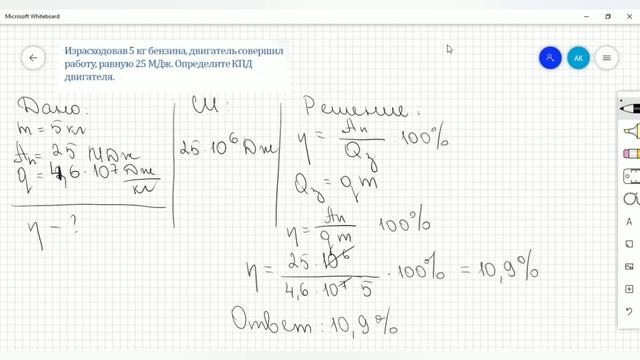 Microsoft Whiteboard
Израсходовав 5 кг бензина, двигатель совершил
работу, равную 25 МДж. Определите КПД
двигателя.
AK
Дано:
m = 5 кг
Aп = 25 МДж
q = 4,6 · 10⁷ Дж/кг
η - ?
СИ:
25·10⁶ Дж
Решение:
η = Aп/Qз 100%
Qз = qm
η = Aп/qm 100%
η = 25·10⁶/4,6·10⁷·5 · 100% = 10,9%
Ответ: 10,9%